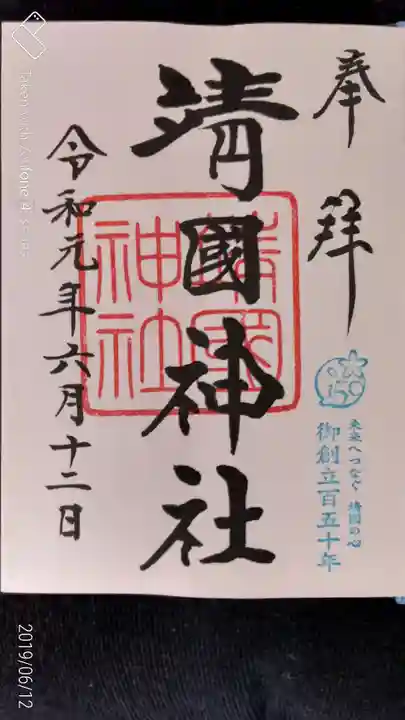 奉拝
150
未来へつなぐ 靖國の心
御創立百五十年
靖國神社
靖國神社
令和元年六月十二日
Taken with Zenfone 4 Series
2019/06/12